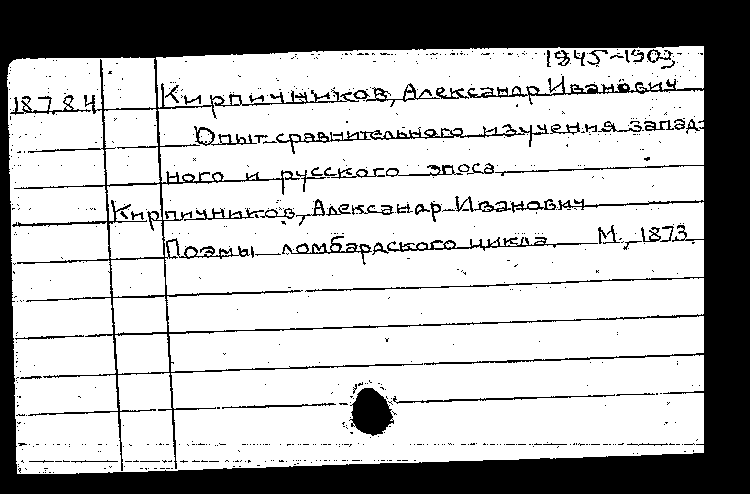 1945-1903
18.7.84 Кирпичников, Александр Иванович
Опыт сравнительного изучения запад-
ного и русского эпоса.
Кирпичников, Александр Иванович
Поэмы ломбардского цикла. М., 1873.